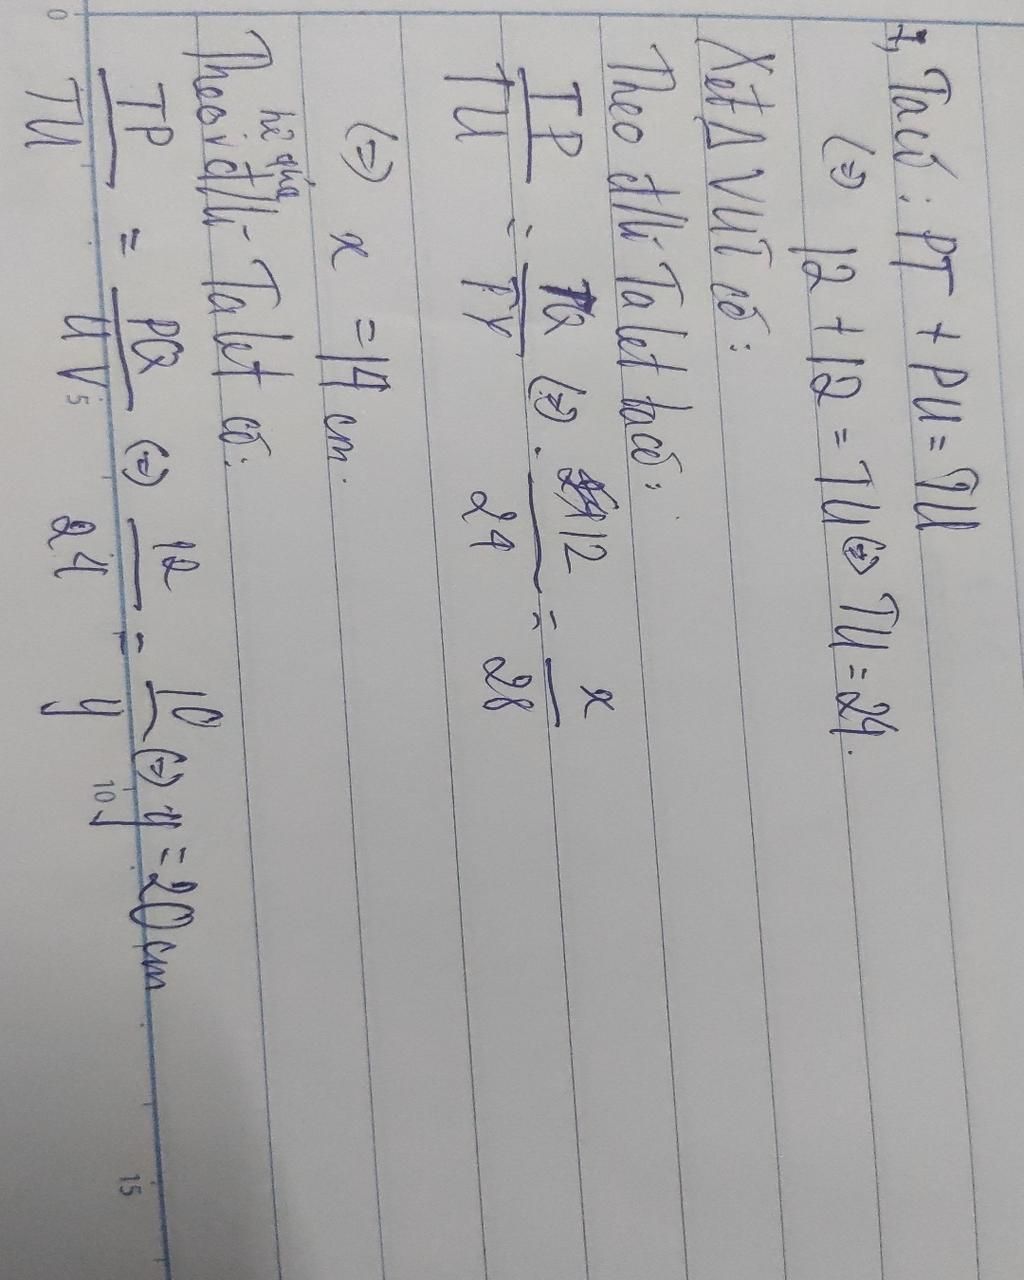 7, Ta có : PT + PU = TU
(=) 12 + 12 = TU (=) TU = 24.
Xét Δ VUT có :
Theo đ/lí Ta let ta có :
TP/TU = TQ/TV (=) 12/24 = x/28
(=) x = 14 cm.
Theo hệ quả đ/lí Ta let có :
TP/TU = PQ/UV (=) 12/24 = 10/y (=) y = 20 cm
0 5 10 15